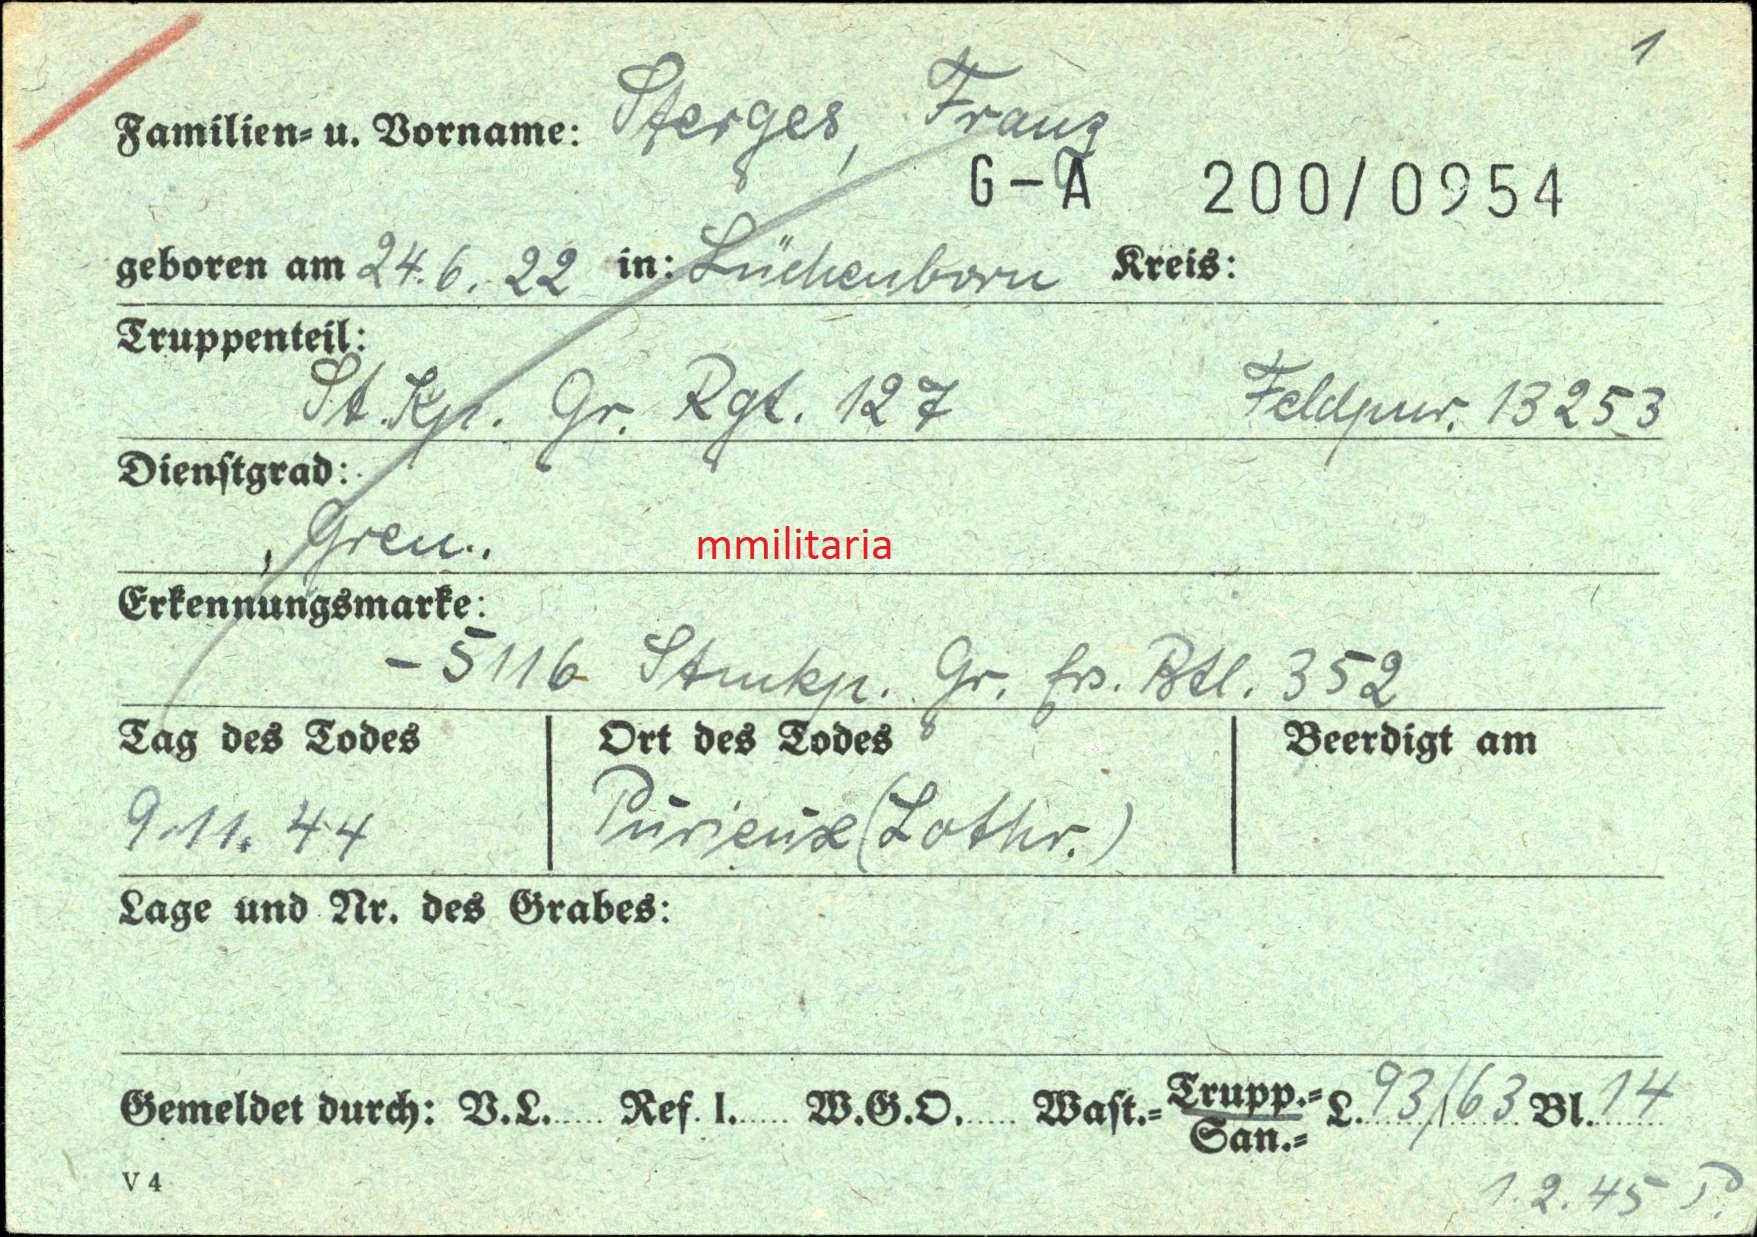 1
Familien- u. Vorname: Sterges, Franz
G-A 200/0954
geboren am 24.6.22 in: Lüchenborn Kreis:
Truppenteil:
St.Kp. Gr. Rgt. 127 Feldpnr. 13253
Dienstgrad:
Gren.
mmilitaria
Erkennungsmarke:
-5116 Stmkp. Gr. Ers. Btl. 352
Tag des Todes Ort des Todes Beerdigt am
9.11.44 Purieux (Lothr.)
Lage und Nr. des Grabes:
Gemeldet durch: V.L..... Ref. I..... W.G.O..... Wast.= Trupp.= L. 93/63 Bl. 14
San.=
V 4
1.2.45